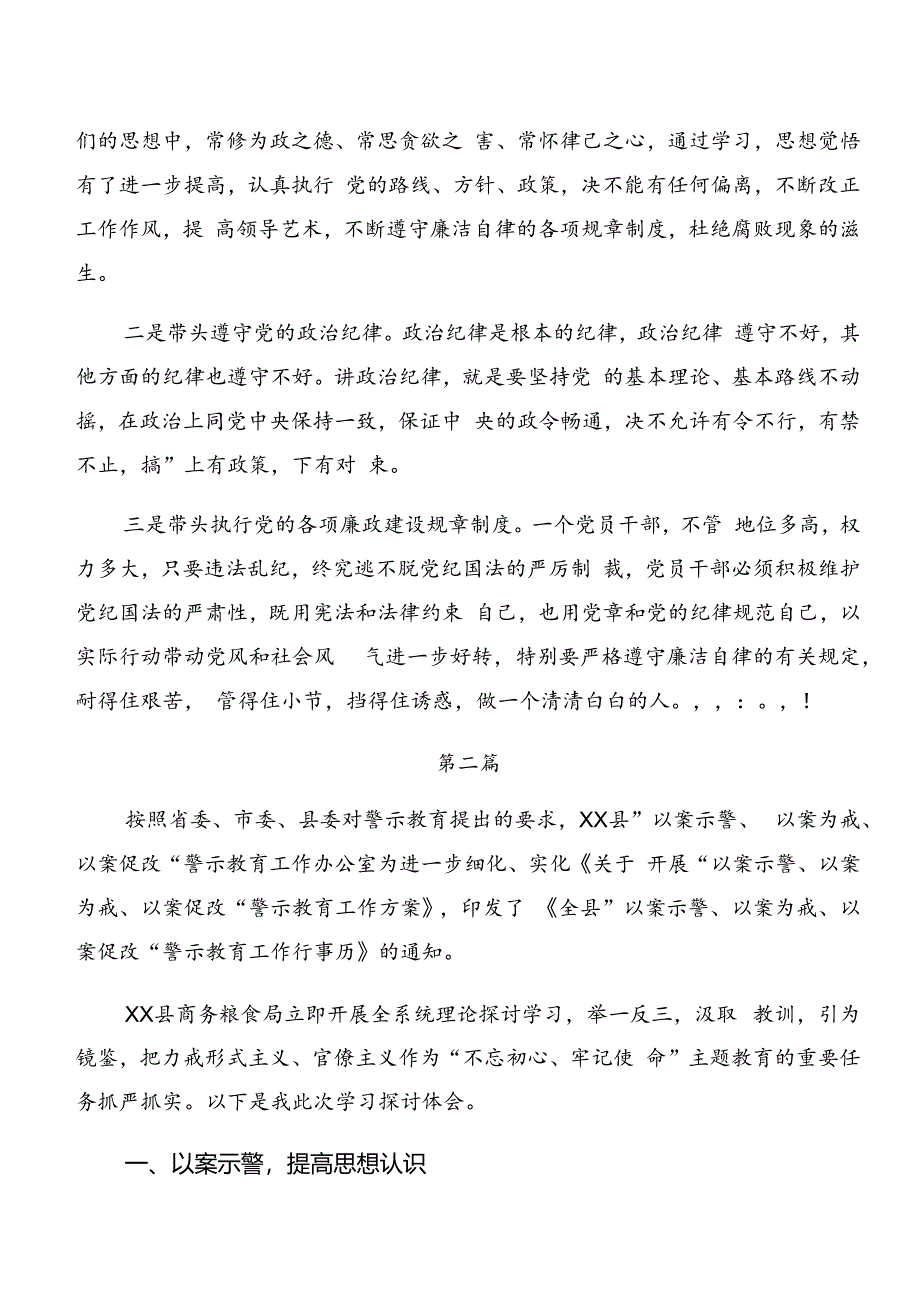 们的思想中，常修为政之德、常思贪欲之 害、常怀律己之心，通过学习，思想觉悟
有了进一步提高，认真执行 党的路线、方针、政策，决不能有任何偏离，不断改正
工作作风，提 高领导艺术，不断遵守廉洁自律的各项规章制度，杜绝腐败现象的滋
生。
二是带头遵守党的政治纪律。政治纪律是根本的纪律，政治纪律 遵守不好，其
他方面的纪律也遵守不好。讲政治纪律，就是要坚持党 的基本理论、基本路线不动
摇，在政治上同党中央保持一致，保证中 央的政令畅通，决不允许有令不行，有禁
不止，搞”上有政策，下有对 束。
三是带头执行党的各项廉政建设规章制度。一个党员干部，不管 地位多高，权
力多大，只要违法乱纪，终究逃不脱党纪国法的严厉制 裁，党员干部必须积极维护
党纪国法的严肃性，既用宪法和法律约束 自己，也用党章和党的纪律规范自己，以
实际行动带动党风和社会风 气进一步好转，特别要严格遵守廉洁自律的有关规定，
耐得住艰苦， 管得住小节，挡得住诱惑，做一个清清白白的人。，，：。，！
第二篇
按照省委、市委、县委对警示教育提出的要求，XX县”以案示警、 以案为戒、
以案促改“警示教育工作办公室为进一步细化、实化《关于 开展“以案示警、以案
为戒、以案促改“警示教育工作方案》，印发了 《全县”以案示警、以案为戒、以
案促改“警示教育工作行事历》的通知。
XX县商务粮食局立即开展全系统理论探讨学习，举一反三，汲取 教训，引为
镜鉴，把力戒形式主义、官僚主义作为“不忘初心、牢记使 命”主题教育的重要任
务抓严抓实。以下是我此次学习探讨体会。
一、以案示警，提高思想认识